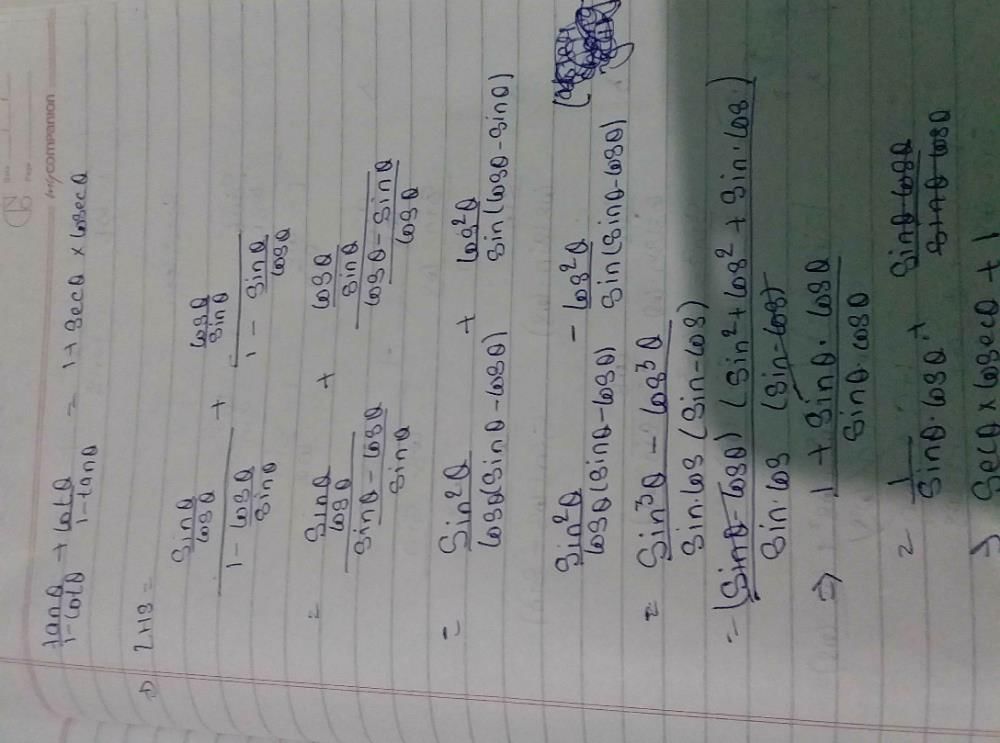 Date
Page
my companion
tanθ/1-cotθ + cotθ/1-tanθ = 1 + secθ × cosecθ
⇒ LHS =
(sinθ/cosθ)/(1 - cosθ/sinθ) + (cosθ/sinθ)/(1 - sinθ/cosθ)
= (sinθ/cosθ)/((sinθ - cosθ)/sinθ) + (cosθ/sinθ)/((cosθ - sinθ)/cosθ)
= sin²θ/cosθ(sinθ - cosθ) + cos²θ/sin(cosθ - sinθ)
sin²θ/cosθ(sinθ - cosθ) - cos²θ/sin(sinθ - cosθ)
= sin³θ - cos³θ/sin·cos (sin - cos)
= (sinθ - cosθ) (sin² + cos² + sin·cos·)/sin·cos (sin - cos)
⇒ 1 + sinθ·cosθ/sinθ·cosθ
= 1/sinθ·cosθ + sinθ cosθ/sinθ cosθ
⇒ secθ × cosecθ + 1